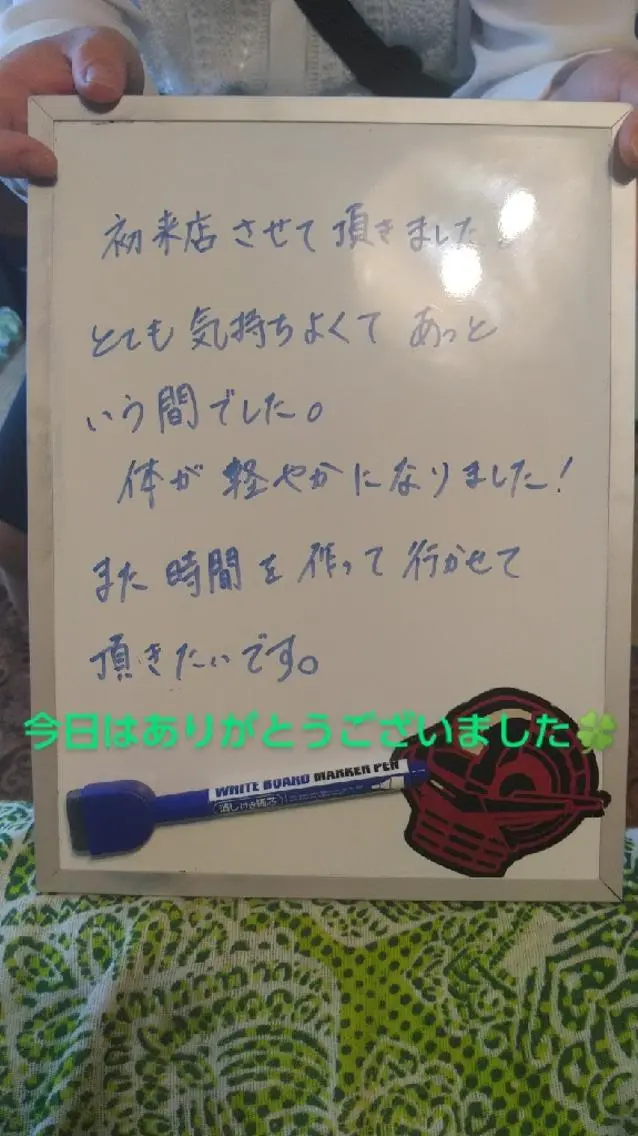 初来店させて頂きました。
とても気持ちよくて あっと
いう間でした。
体が軽やかになりました!
また時間を作って行かせて
頂きたいです。
今日はありがとうございました🍀
WHITE BOARD MARKER PEN